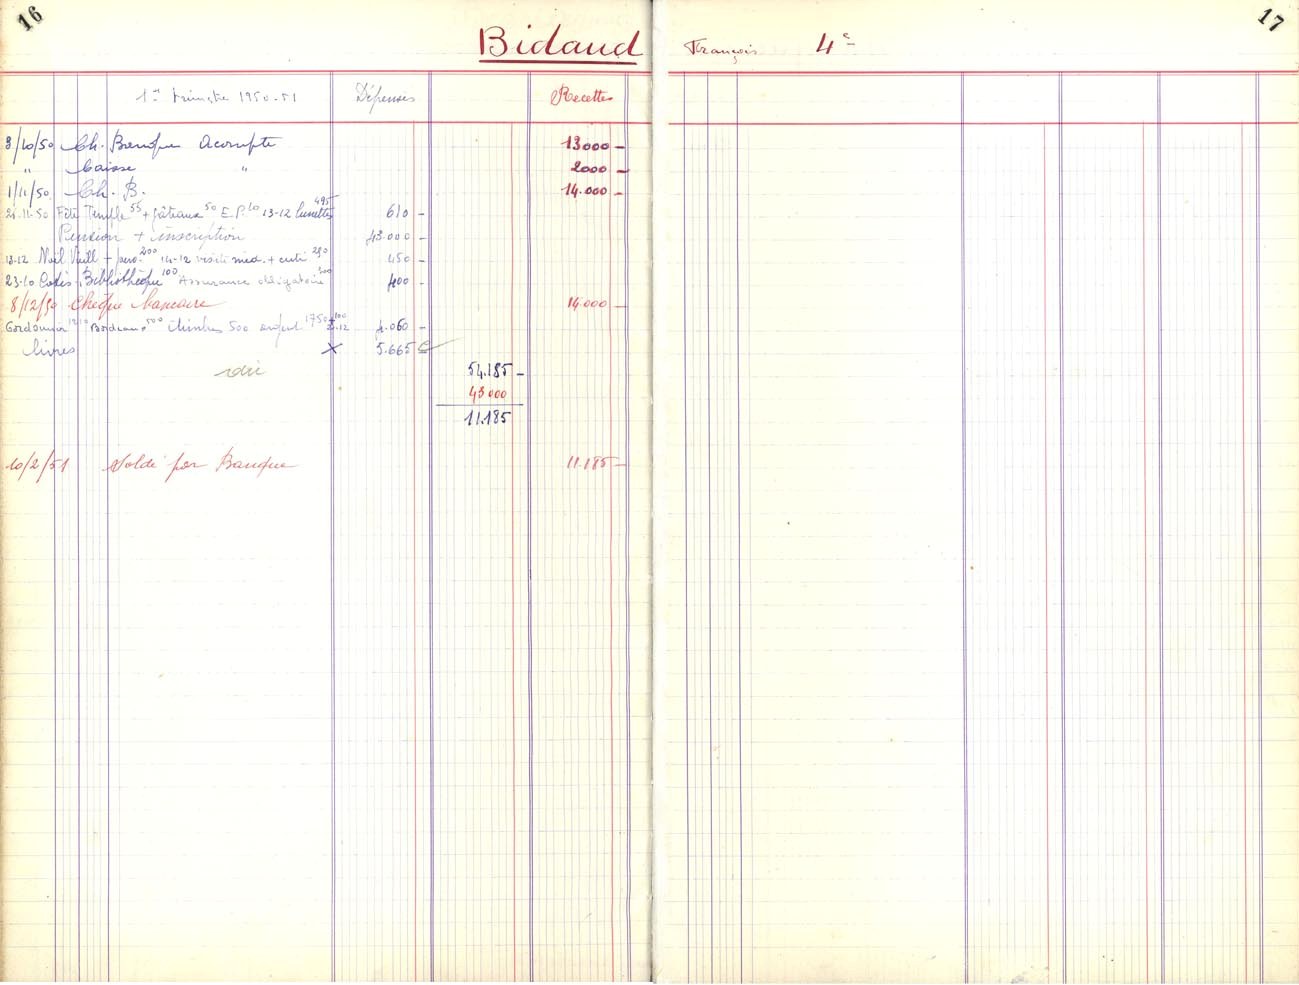 16
17
Bidaud François 4e
1er trimestre 1950-51 Dépenses Recettes
3/10/50 Ch. Banque Acompte 13000 -
" Caisse " 2000 -
1/11/50 Ch. B. 14.000 -
21-11-50 Fête Temple 55 + gâteaux 50 E.P. 10 13-12 lunettes 495 610 -
Pension + inscription 43.000 -
13-12 Noël Vieill + paro. 200 14-12 visite méd. + cuti 250 450 -
23-10 Cotis. Bibliothèque 100 Assurance obligatoire 300 400 -
8/12/50 Chèque bancaire 14.000 -
Cordonnier 1210 Bordeaux 500 timbres 500 argent 1750 + 100 22.12 4.060 -
livres x 5.665
54.185 -
43000
11.185
10/2/51 Solde par Banque 11.185 -